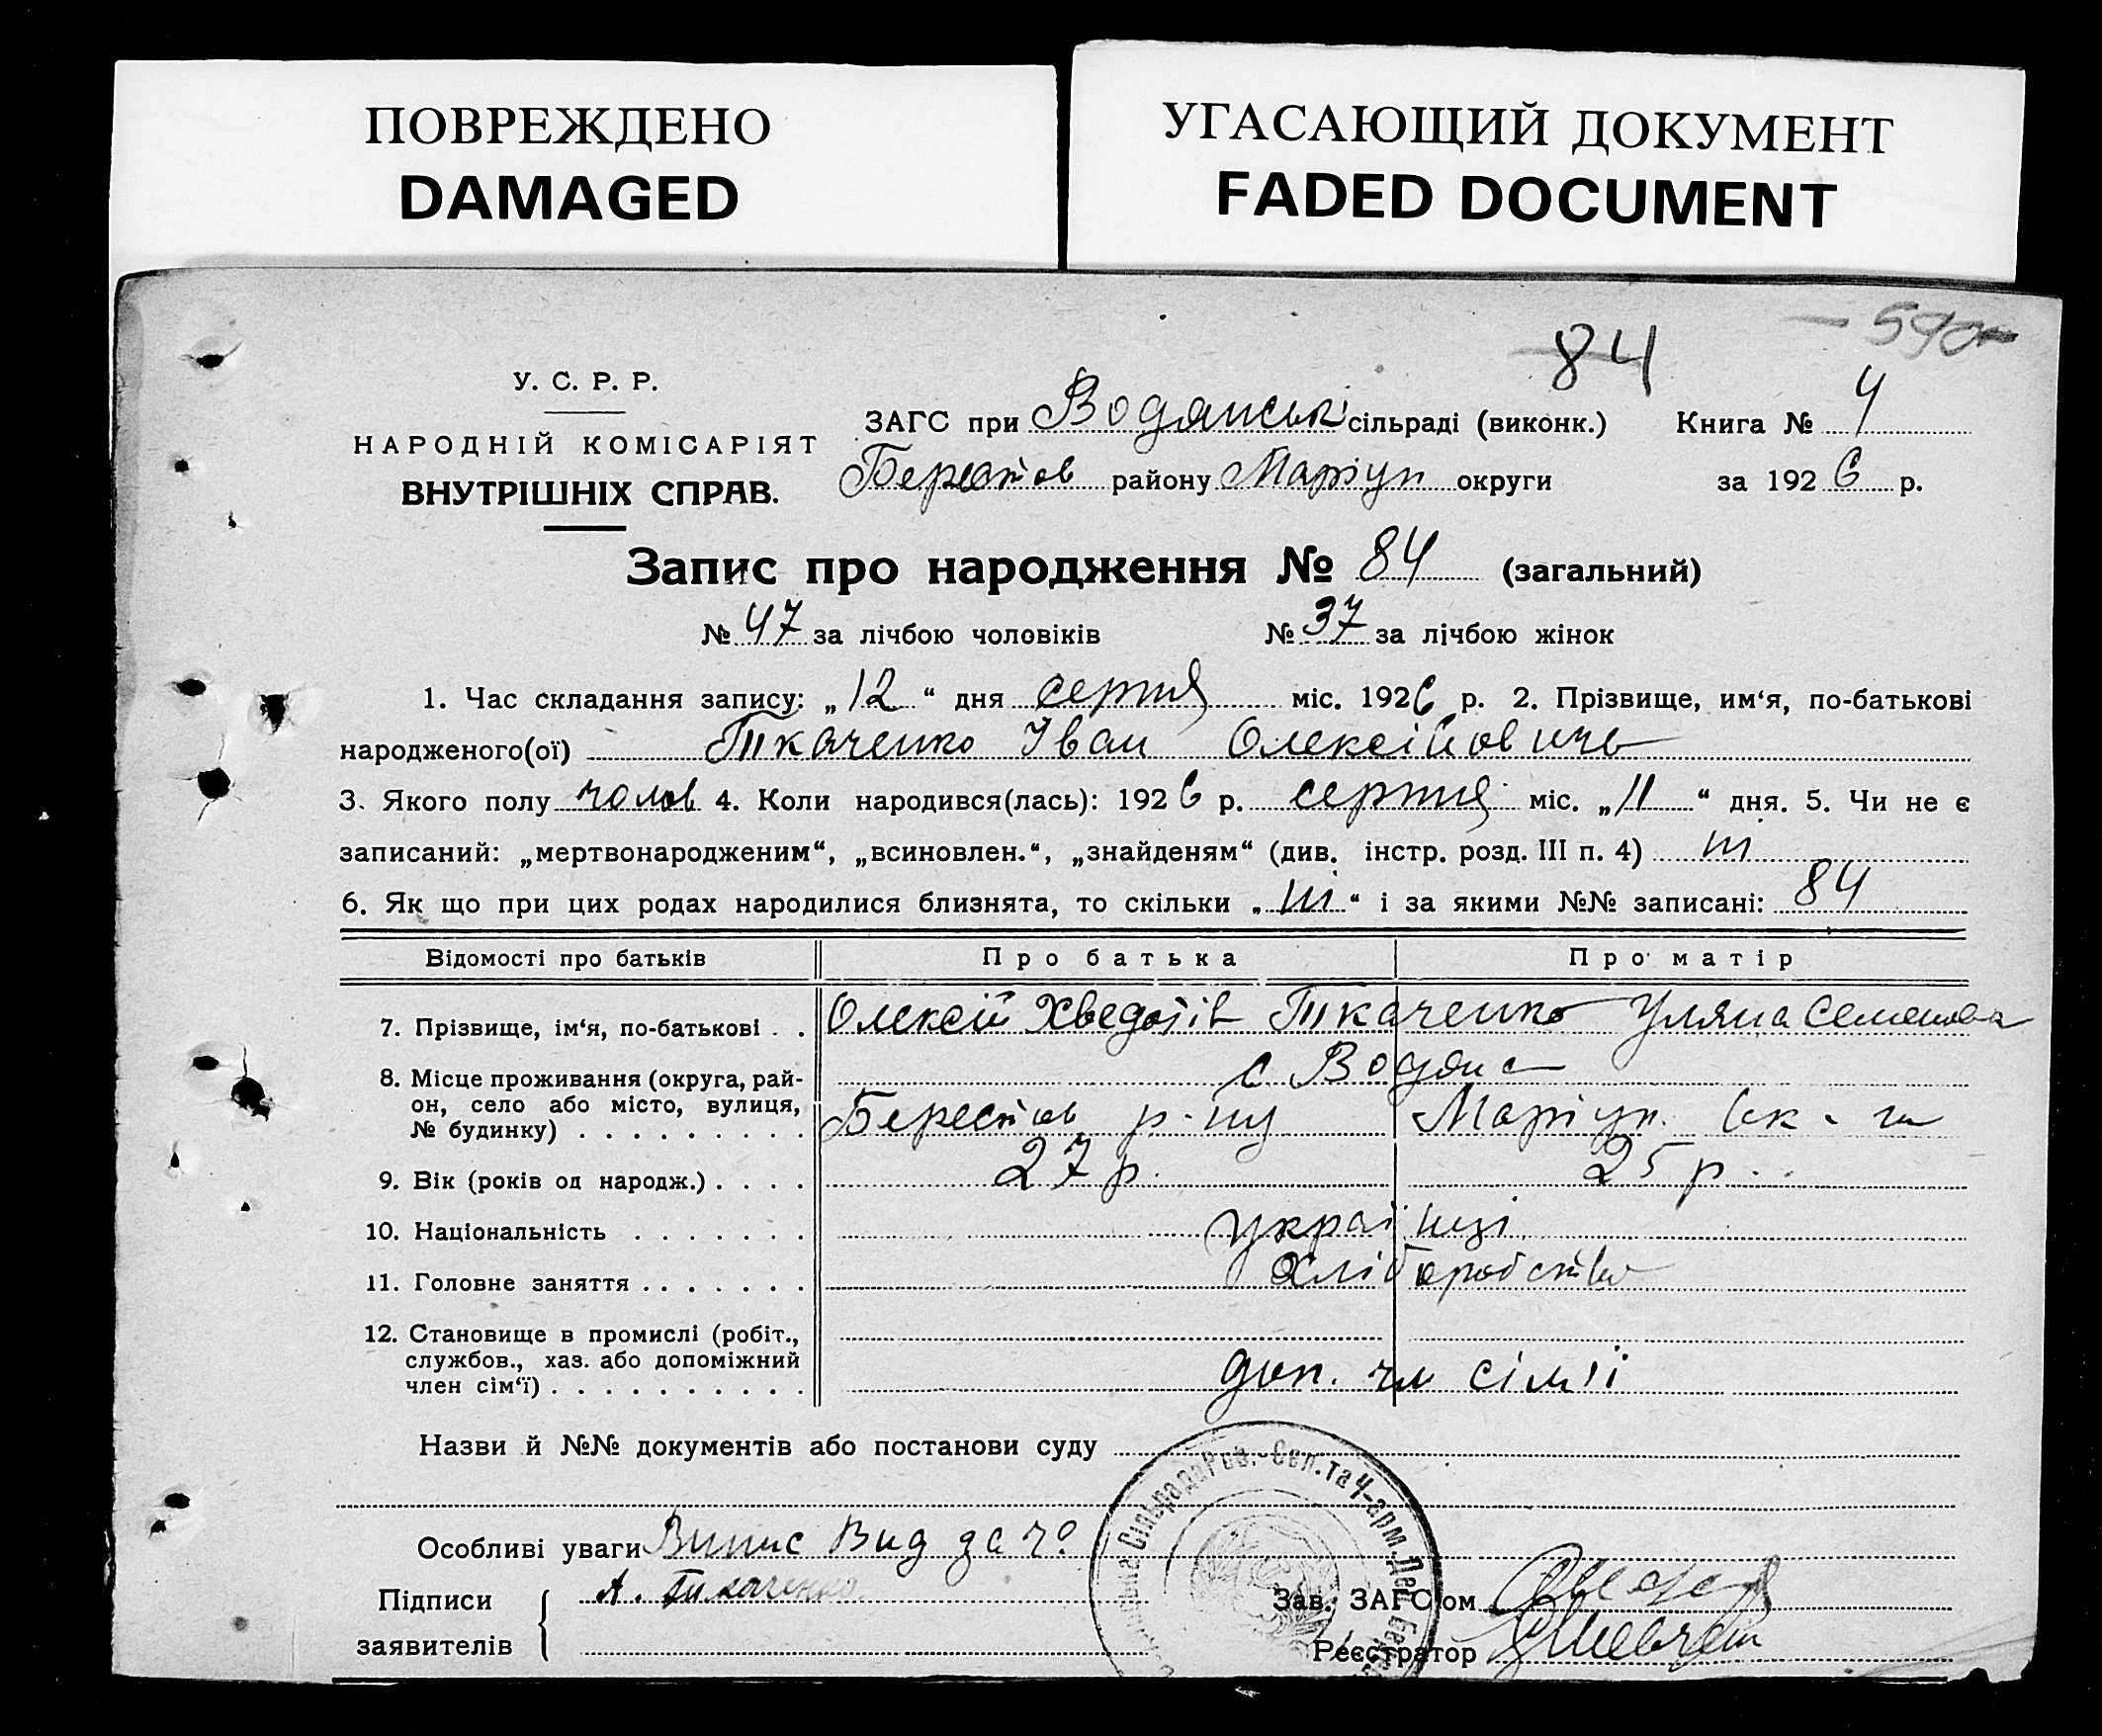 ПОВРЕЖДЕНО
DAMAGED
УГАСАЮЩИЙ ДОКУМЕНТ
FADED DOCUMENT
590
84
У. С. Р. Р.
НАРОДНІЙ КОМІСАРІЯТ
ВНУТРІШНІХ СПРАВ.
ЗАГС при Водянськ сільраді (виконк.) Книга № 4
Берестов району Маріуп округи за 1926 р.
Запис про народження № 84 (загальний)
№ 47 за лічбою чоловіків № 37 за лічбою жінок
1. Час складання запису: „12“ дня серпня міс. 1926 р. 2. Прізвище, им‘я, по-батькові
народженого(ої) Ткаченко Іван Олексійович
3. Якого полу чолов 4. Коли народився(лась): 1926 р. серпня міс. „11“ дня. 5. Чи не є
записаний: „мертвонародженим“, „всиновлен.“, „знайденям“ (див. інстр. розд. III п. 4) ні
6. Як що при цих родах народилися близнята, то скільки „ні“ і за якими №№ записані: 84
Відомості про батьків Про батька Про матір
7. Прізвище, ім‘я, по-батькові . . Олексій Хведотів Ткаченко Уляна Семенова
8. Місце проживання (округа, рай- с Водян
он, село або місто, вулиця, Берестов р-ну Маріуп. Ок-ги
№ будинку) . . . . . . . . .
9. Вік (років од народж.) . . . . 27 р. 25 р.
10. Національність . . . . . . . українці
11. Головне заняття . . . . . . . хліборобство
12. Становище в промислі (робіт.,
службов., хаз. або допоміжний
член сім‘ї) . . . . . . . . . . доп. чл сім'ї
Назви й №№ документів або постанови суду
Особливі уваги Випис Вид
Підписи А. Ткаченко
заявителів
Зав. ЗАГС‘ом
Реєстратор
Сільрада Роб.-Сел. та Ч-арм. Деп.